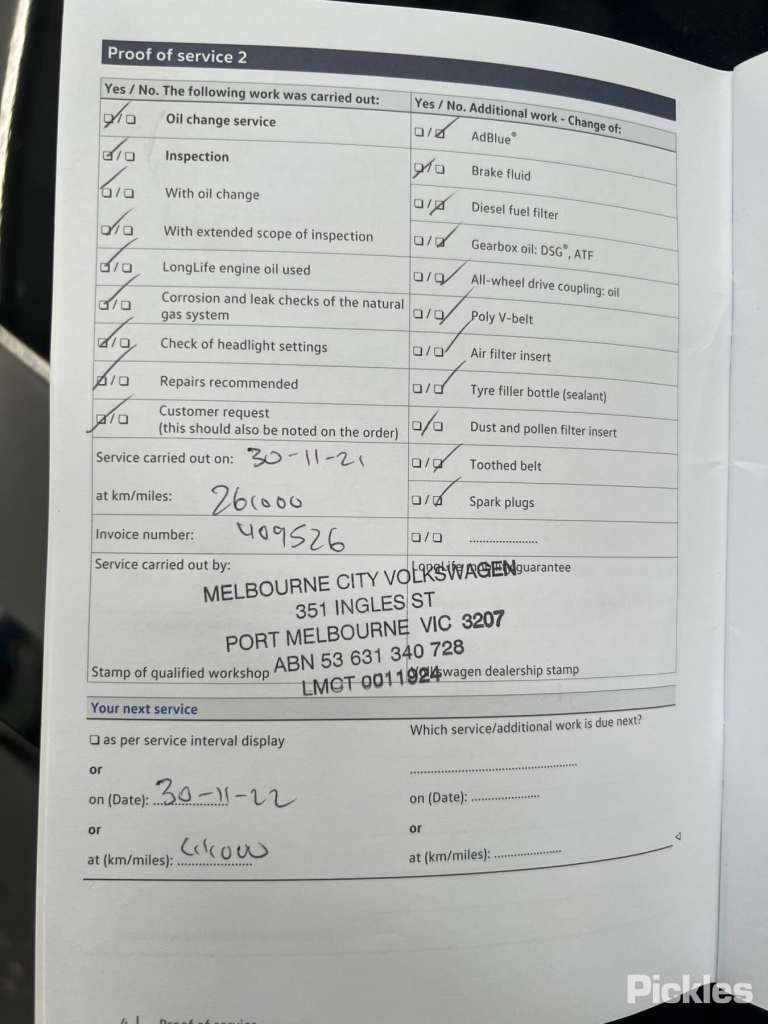 Proof of service 2
Yes / No. The following work was carried out:
☑/☐ Oil change service
☑/☐ Inspection
☑/☐ With oil change
☑/☐ With extended scope of inspection
☑/☐ LongLife engine oil used
☑/☐ Corrosion and leak checks of the natural
gas system
☑/☐ Check of headlight settings
☑/☐ Repairs recommended
☑/☐ Customer request
(this should also be noted on the order)
Service carried out on: 30-11-21
at km/miles:
Invoice number: 409526
Service carried out by:
Stamp of qualified workshop
Yes / No. Additional work - Change of:
☐/☑ AdBlue®
☑/☐ Brake fluid
☐/☑ Diesel fuel filter
☐/☑ Gearbox oil: DSG®, ATF
☐/☑ All-wheel drive coupling: oil
☐/☑ Poly V-belt
☐/☑ Air filter insert
☐/☑ Tyre filler bottle (sealant)
☐/☐ Dust and pollen filter insert
☐/☑ Toothed belt
☐/☑ Spark plugs
☐/☐ ....................
LongLife guarantee
Volkswagen dealership stamp
MELBOURNE CITY VOLKSWAGEN
351 INGLES ST
PORT MELBOURNE VIC 3207
ABN 53 631 340 728
LMCT 0011924
Your next service
☐ as per service interval display
or
on (Date): 30-11-22
or
at (km/miles):
Which service/additional work is due next?
on (Date): ....................
or
at (km/miles): ....................
4 | Proof of service
Pickles